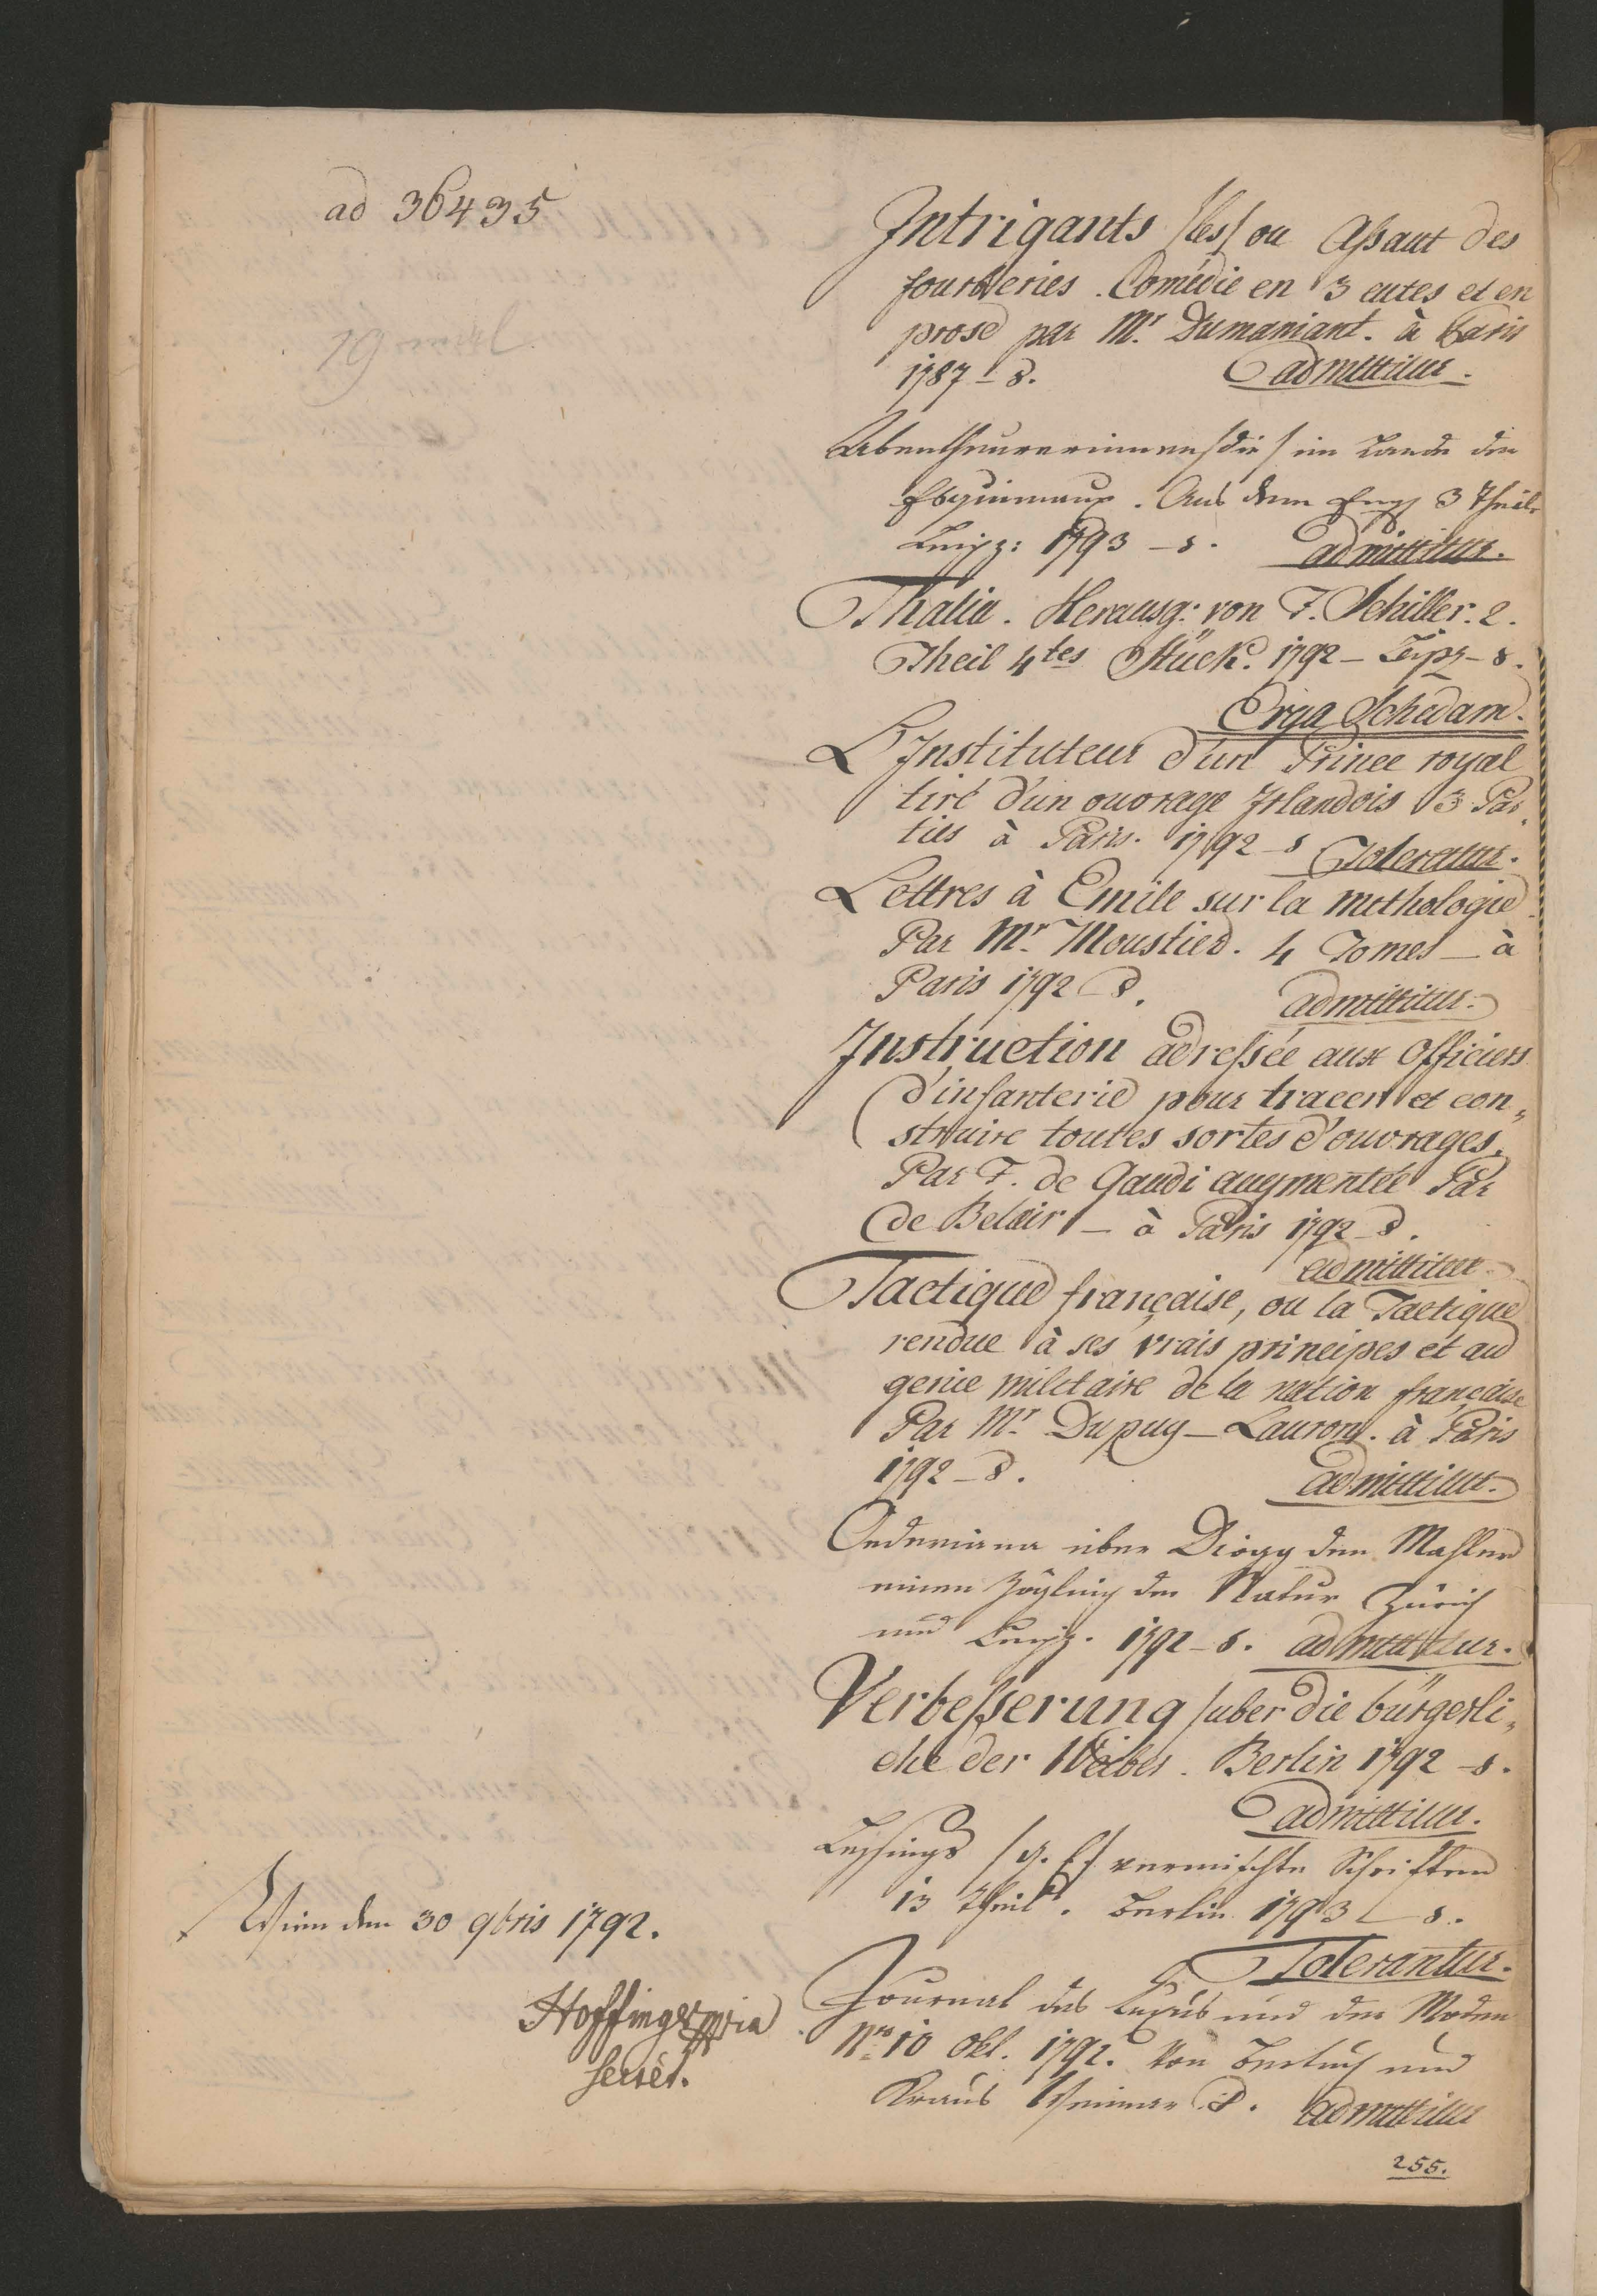 ad 36435
Intrigants /les/ ou Aßaut des
fourberies. Comédie en 3 eutes et en
prose par Mr. Dumaniant. à Paris
1787 - 8. admittitur.
Abentheurerinnen /die/ im Lande der
Esquimaux. Aus dem Engl 3 Theile
Leipz: 1793 - 8. admittitur.
Thalia. Herausg: von F. Schiller. 2.
Theil 4tes Stück. 1792 - Leipz - 8.
Erga Schedam.
L'Instituteur d'un Prince royal
tiré d'un ouvrage Irlandois 3 Par,
ties à Paris. 1792 - 8 Toleratur.
Lettres à Emile sur la mithologie
Par Mr. Moustier. 4 Tomes - à
Paris 1792 8. admittitur.
Instruction adreßée aux Officiers
d'infanterie pour tracer et con,,
struire toutes sortes d'ouvrages.
Par F. de Gaudi augmentée Par
de Belair - à Paris 1792 - 8.
admittitur.
Tactique française, ou la Tactique
rendue à ses vrais principes et au
genie militaire de la nation française
Par Mr. Dupuy - Lauron. à Paris
1792 - 8. admittitur.
über Diogg den Mahler
einen Zögling der Natur Zürich
und Leipz. 1792 - 8. admittitur.
Verbeßerung /uber die bürgerli,,
che der Weiber. Berlin 1792 - 8.
admittitur.
Leßings /g. E/ vermischte Schriften
13 Theil. Berlin 1793 - 8.
Tolerantur.
Journal des Luxus und der Moden
Nro. 10 Okt. 1792. Von Bertuch und
Kraus Weimar 8. admittitur
Wien den 30 9bris 1792.
Hoffinger mpria
secret.
255.